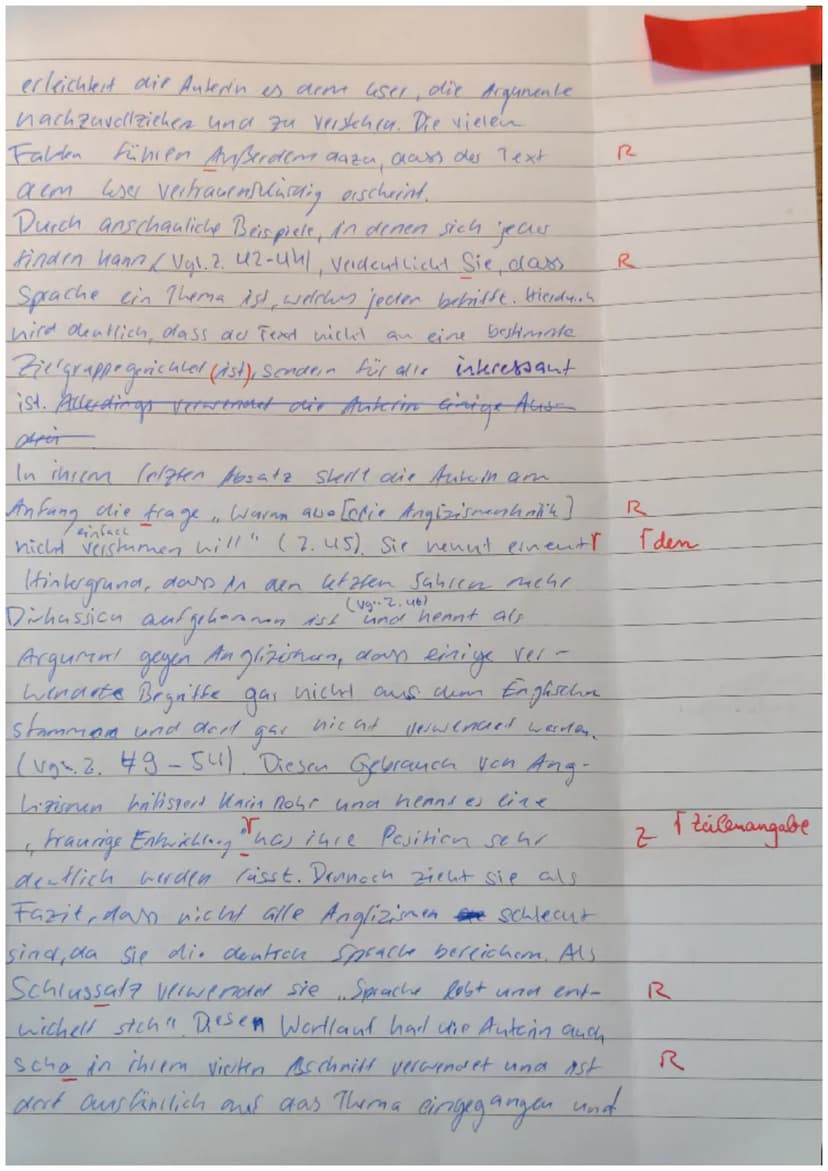 erleichtert die Autorin es dem Leser, die Argumente
nachzuvollziehen und zu verstehen. Die vielen
Fakten führen Außerdem dazu, dass der Text R
dem Leser vertrauenswürdig erscheint.
Durch anschauliche Beispiele, in denen sich jeder
finden kann (Vgl. Z. 42-44), verdeutlicht Sie, dass R
Sprache ein Thema ist, welches jeden betrifft. Hierdurch
wird deutlich, dass der Text nicht an eine bestimmte
Zielgruppe gerichtet (ist), sondern für alle interessant
ist. Allerdings verwendet die Autorin einige Aus-
In ihrem letzten Absatz stellt die Autorin am
Anfang die frage „Warum aber [die Anglizismenkritik] R
einfach
nicht verstummen will" (Z. 45). Sie nennt erneut den
Hintergrund, dass in den letzten Jahren mehr
(Vgl. Z. 46)
Diskussion aufgekommen ist und nennt als
Argument gegen Anglizismen, dass einige ver-
wendete Begriffe gar nicht aus dem Englischen
stammen und dort gar nicht verwendet werden.
(Vgl. Z. 49-54). Diesen Gebrauch von Ang-
lizismen kritisiert Karin Rohr und nennt es eine
„traurige Entwicklung" was ihre Position sehr Z Zeilenangabe
deutlich werden lässt. Dennoch zieht sie als
Fazit, dass nicht alle Anglizismen schlecht
sind, da sie die deutsch Sprache bereichern. Als
Schlussatz verwendet sie „Sprache lebt und ent- R
wickelt sich". Diesen Wortlaut hat die Autorin auch
scho in ihrem vierten Abschnitt verwendet und ist R
dort ausführlich auf das Thema eingegangen und